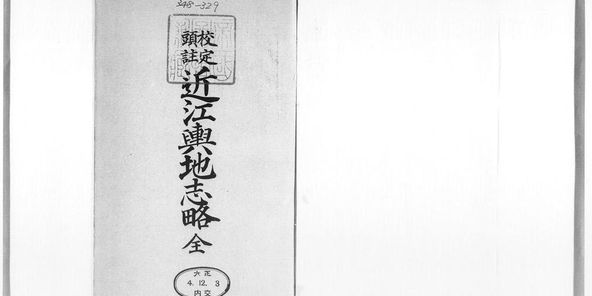 348-329
校定
頭註
近江輿地志略 全
大正
4. 12. 3
内交